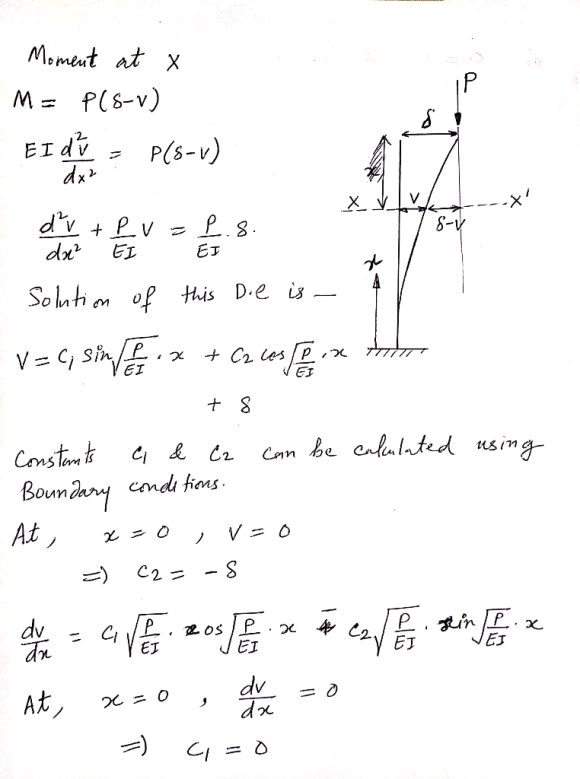 Moment at x
M = P(δ-v)
EI d²v/dx² = P(δ-v)
d²v/dx² + P/EI v = P/EI . δ.
Solution of this D.e is —
V = C₁ Sin√(P/EI) . x + C₂ Cos√(P/EI) . x
+ δ
Constants C₁ & C₂ can be calculated using
Boundary conditions.
At, x = 0 , V = 0
=) C₂ = - δ
dv/dx = C₁ √(P/EI) . cos √(P/EI) . x - C₂ √(P/EI) . sin √(P/EI) . x
At, x = 0 , dv/dx = 0
=) C₁ = 0
P
δ
X V X'
δ-v
x